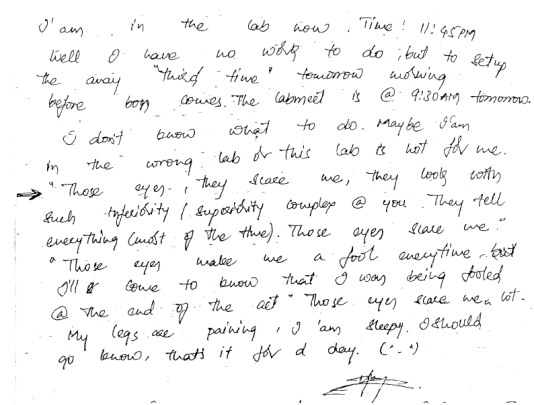 I'am in the lab now. Time! 11:45PM
Well I have no work to do, but to setup
the array "third time" tomorrow morning
before boss comes. The labmeet is @ 9:30AM tomorrow.
I don't know what to do. Maybe I'am
in the wrong lab or this lab is not for me.
"Those eyes, they scare me, they look with
such inferiority / superiority complex @ you. They tell
everything (most of the time). Those eyes scare me."
"Those eyes make me a fool everytime, but
I'll come to know that I was being fooled
@ the end of the act" Those eyes scare me a lot.
My legs are paining, I 'am sleepy. I should
go know, thats it for d day. (^_^)